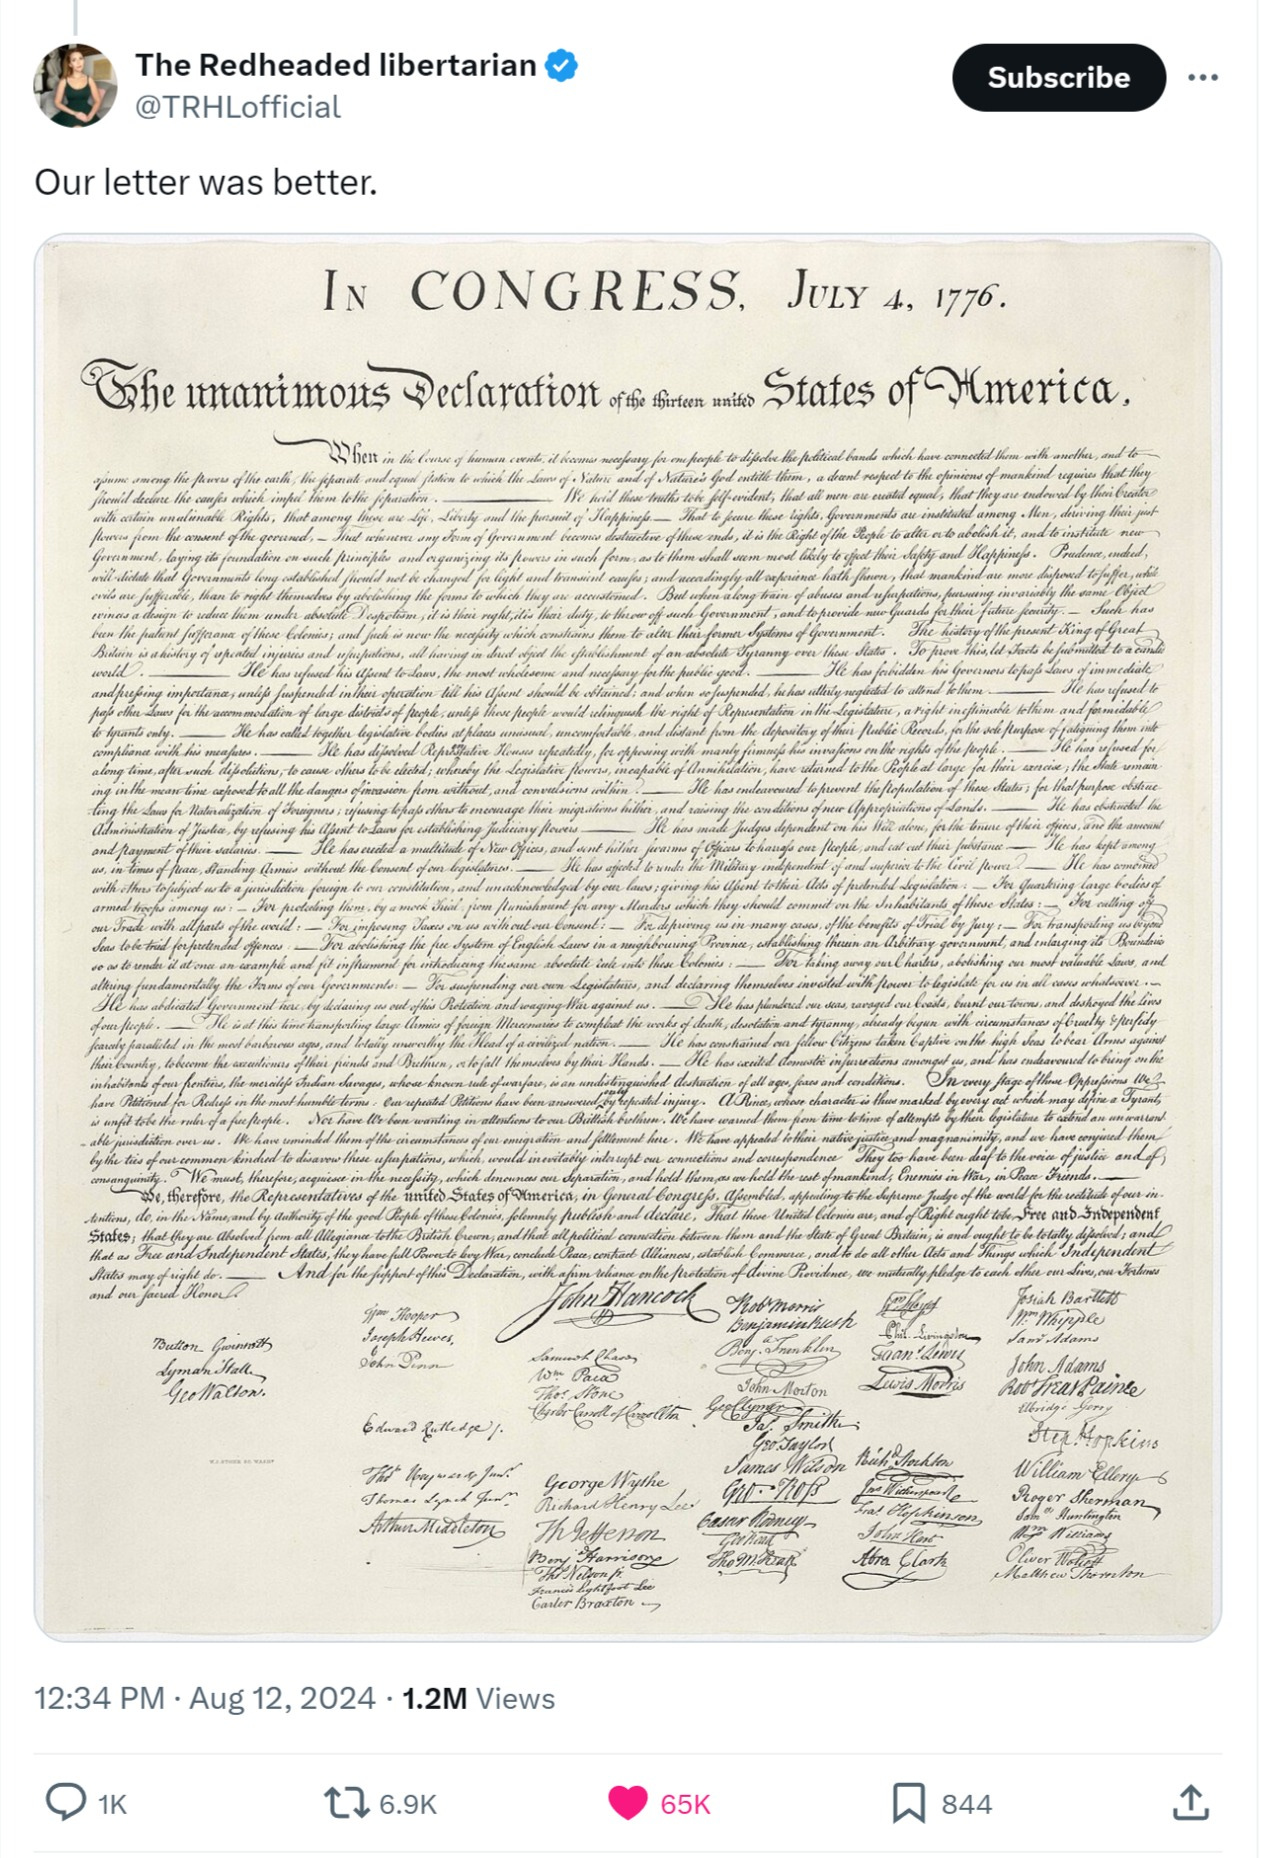 The Redheaded libertarian
@TRHLofficial
Subscribe
Our letter was better.
In CONGRESS, July 4, 1776.
The unanimous Declaration of the thirteen united States of America,
When in the Course of human events, it becomes necessary for one people to dissolve the political bands which have connected them with another, and to
assume among the powers of the earth, the separate and equal station to which the Laws of Nature and of Nature's God entitle them, a decent respect to the opinions of mankind requires that they
should declare the causes which impel them to the separation. We hold these truths to be self-evident, that all men are created equal, that they are endowed by their Creator
with certain unalienable Rights, that among these are Life, Liberty and the pursuit of Happiness.— That to secure these rights, Governments are instituted among Men, deriving their just
powers from the consent of the governed,— That whenever any Form of Government becomes destructive of these ends, it is the Right of the People to alter or to abolish it, and to institute new
Government, laying its foundation on such principles and organizing its powers in such form, as to them shall seem most likely to effect their Safety and Happiness. Prudence, indeed,
will dictate that Governments long established should not be changed for light and transient causes; and accordingly all experience hath shewn, that mankind are more disposed to suffer, while
evils are sufferable, than to right themselves by abolishing the forms to which they are accustomed. But when a long train of abuses and usurpations, pursuing invariably the same Object
evinces a design to reduce them under absolute Despotism, it is their right, it is their duty, to throw off such Government, and to provide new Guards for their future security.— Such has
been the patient sufferance of these Colonies; and such is now the necessity which constrains them to alter their former Systems of Government. The history of the present King of Great
Britain is a history of repeated injuries and usurpations, all having in direct object the establishment of an absolute Tyranny over these States. To prove this, let Facts be submitted to a candid
world. He has refused his Assent to Laws, the most wholesome and necessary for the public good. He has forbidden his Governors to pass Laws of immediate
and pressing importance, unless suspended in their operation till his Assent should be obtained; and when so suspended, he has utterly neglected to attend to them. He has refused to
pass other Laws for the accommodation of large districts of people, unless those people would relinquish the right of Representation in the Legislature, a right inestimable to them and formidable
to tyrants only. He has called together legislative bodies at places unusual, uncomfortable, and distant from the depository of their Public Records, for the sole purpose of fatiguing them into
compliance with his measures. He has dissolved Representative Houses repeatedly, for opposing with manly firmness his invasions on the rights of the people. He has refused for
a long time, after such dissolutions, to cause others to be elected; whereby the Legislative powers, incapable of Annihilation, have returned to the People at large for their exercise; the State remain
ing in the mean time exposed to all the dangers of invasion from without, and convulsions within. He has endeavoured to prevent the population of these States; for that purpose obstruc
ting the Laws for Naturalization of Foreigners; refusing to pass others to encourage their migrations hither, and raising the conditions of new Appropriations of Lands. He has obstructed the
Administration of Justice, by refusing his Assent to Laws for establishing Judiciary powers. He has made Judges dependent on his Will alone, for the tenure of their offices, and the amount
and payment of their salaries. He has erected a multitude of New Offices, and sent hither swarms of Officers to harrass our people, and eat out their substance. He has kept among
us, in times of peace, Standing Armies without the Consent of our legislatures. He has affected to render the Military independent of and superior to the Civil power. He has combined
with others to subject us to a jurisdiction foreign to our constitution, and unacknowledged by our laws; giving his Assent to their Acts of pretended Legislation: — For Quartering large bodies of
armed troops among us: — For protecting them, by a mock Trial, from punishment for any Murders which they should commit on the Inhabitants of these States: — For cutting off
our Trade with all parts of the world: — For imposing Taxes on us without our Consent: — For depriving us in many cases, of the benefits of Trial by Jury: — For transporting us beyond
Seas to be tried for pretended offences — For abolishing the free System of English Laws in a neighbouring Province, establishing therein an Arbitrary government, and enlarging its Boundaries
so as to render it at once an example and fit instrument for introducing the same absolute rule into these Colonies: — For taking away our Charters, abolishing our most valuable Laws, and
altering fundamentally the Forms of our Governments: — For suspending our own Legislatures, and declaring themselves invested with power to legislate for us in all cases whatsoever.—
He has abdicated Government here, by declaring us out of his Protection and waging War against us. He has plundered our seas, ravaged our Coasts, burnt our towns, and destroyed the lives
of our people. He is at this time transporting large Armies of foreign Mercenaries to compleat the works of death, desolation and tyranny, already begun with circumstances of Cruelty & perfidy
scarcely paralleled in the most barbarous ages, and totally unworthy the Head of a civilized nation. He has constrained our fellow Citizens taken Captive on the high Seas to bear Arms against
their Country, to become the executioners of their friends and Brethren, or to fall themselves by their Hands. He has excited domestic insurrections amongst us, and has endeavoured to bring on the
inhabitants of our frontiers, the merciless Indian Savages, whose known rule of warfare, is an undistinguished destruction of all ages, sexes and conditions. In every stage of these Oppressions We
have Petitioned for Redress in the most humble terms: Our repeated Petitions have been answered only by repeated injury. A Prince, whose character is thus marked by every act which may define a Tyrant,
is unfit to be the ruler of a free people. Nor have We been wanting in attentions to our Brittish brethren. We have warned them from time to time of attempts by their legislature to extend an unwarrant
able jurisdiction over us. We have reminded them of the circumstances of our emigration and settlement here. We have appealed to their native justice and magnanimity, and we have conjured them
by the ties of our common kindred to disavow these usurpations, which, would inevitably interrupt our connections and correspondence They too have been deaf to the voice of justice and of
consanguinity. We must, therefore, acquiesce in the necessity, which denounces our Separation, and hold them, as we hold the rest of mankind, Enemies in War, in Peace Friends.
We, therefore, the Representatives of the united States of America, in General Congress, Assembled, appealing to the Supreme Judge of the world for the rectitude of our in-
tentions, do, in the Name, and by Authority of the good People of these Colonies, solemnly publish and declare, That these United Colonies are, and of Right ought to be Free and Independent
States; that they are Absolved from all Allegiance to the British Crown, and that all political connection between them and the State of Great Britain, is and ought to be totally dissolved; and
that as Free and Independent States, they have full Power to levy War, conclude Peace, contract Alliances, establish Commerce, and to do all other Acts and Things which Independent
States may of right do. And for the support of this Declaration, with a firm reliance on the protection of divine Providence, we mutually pledge to each other our Lives, our Fortunes
and our sacred Honor.
Button Gwinnett
Lyman Hall
Geo Walton.
Wm Hooper
Joseph Hewes,
John Penn
Edward Rutledge /.
Thos Heyward Junr.
Thomas Lynch Junr.
Arthur Middleton
John Hancock
Samuel Chase
Wm. Paca
Thos. Stone
Charles Carroll of Carrollton
George Wythe
Richard Henry Lee
Th Jefferson
Benj Harrison
Thos Nelson jr.
Francis Lightfoot Lee
Carter Braxton
Robt Morris
Benjamin Rush
Benj. Franklin
John Morton
Geo Clymer
Jas. Smith
Geo Taylor
James Wilson
Geo. Ross
Caesar Rodney
Geo Read
Tho M:Kean
Wm Floyd
Phil. Livingston
Frans. Lewis
Lewis Morris
Richd. Stockton
Jno Witherspoon
Fras. Hopkinson
John Hart
Abra Clark
Josiah Bartlett
Wm Whipple
Saml Adams
John Adams
Robt Treat Paine
Elbridge Gerry
Step. Hopkins
William Ellery
Roger Sherman
Saml Huntington
Wm Williams
Oliver Wolcott
Matthew Thornton
12:34 PM · Aug 12, 2024 · 1.2M Views
1K
6.9K
65K
844